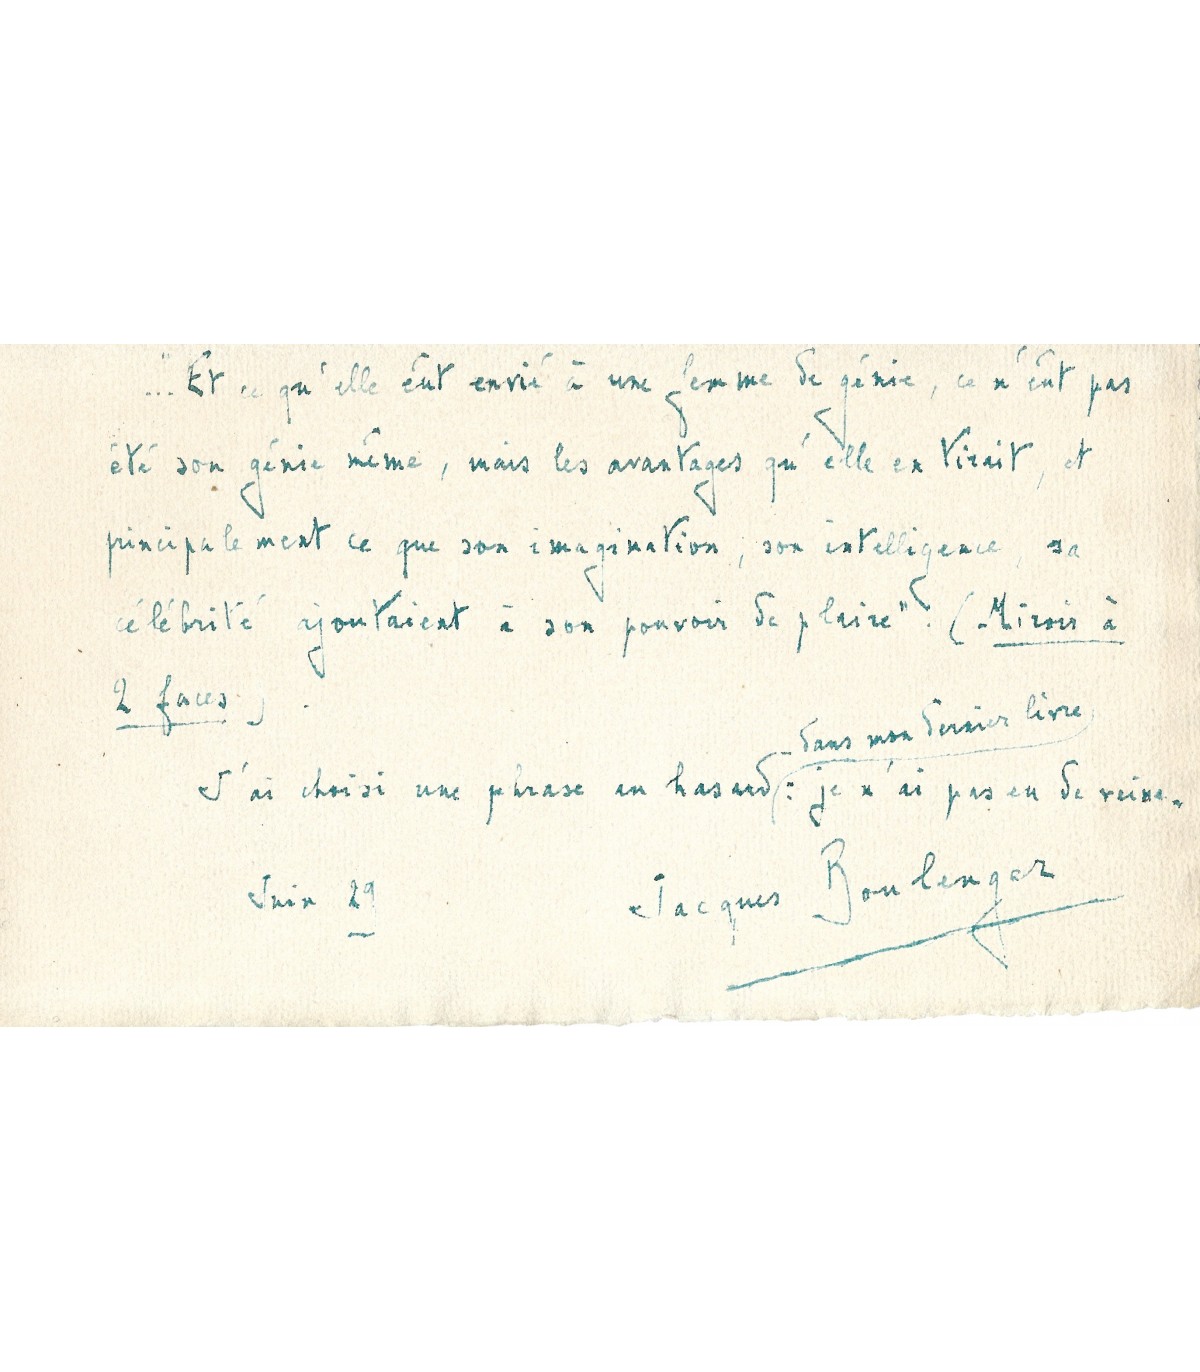 "... Et ce qu'elle eût envié à une femme de génie, ce n'eût pas
été son génie même, mais les avantages qu'elle en tirait, et
principalement ce que son imagination, son intelligence, sa
célébrité ajoutaient à son pouvoir de plaire". (Miroir à
2 faces).
dans mon dernier livre
J'ai choisi une phrase au hasard : je n'ai pas eu de veine.
Juin 29
Jacques Boulenger